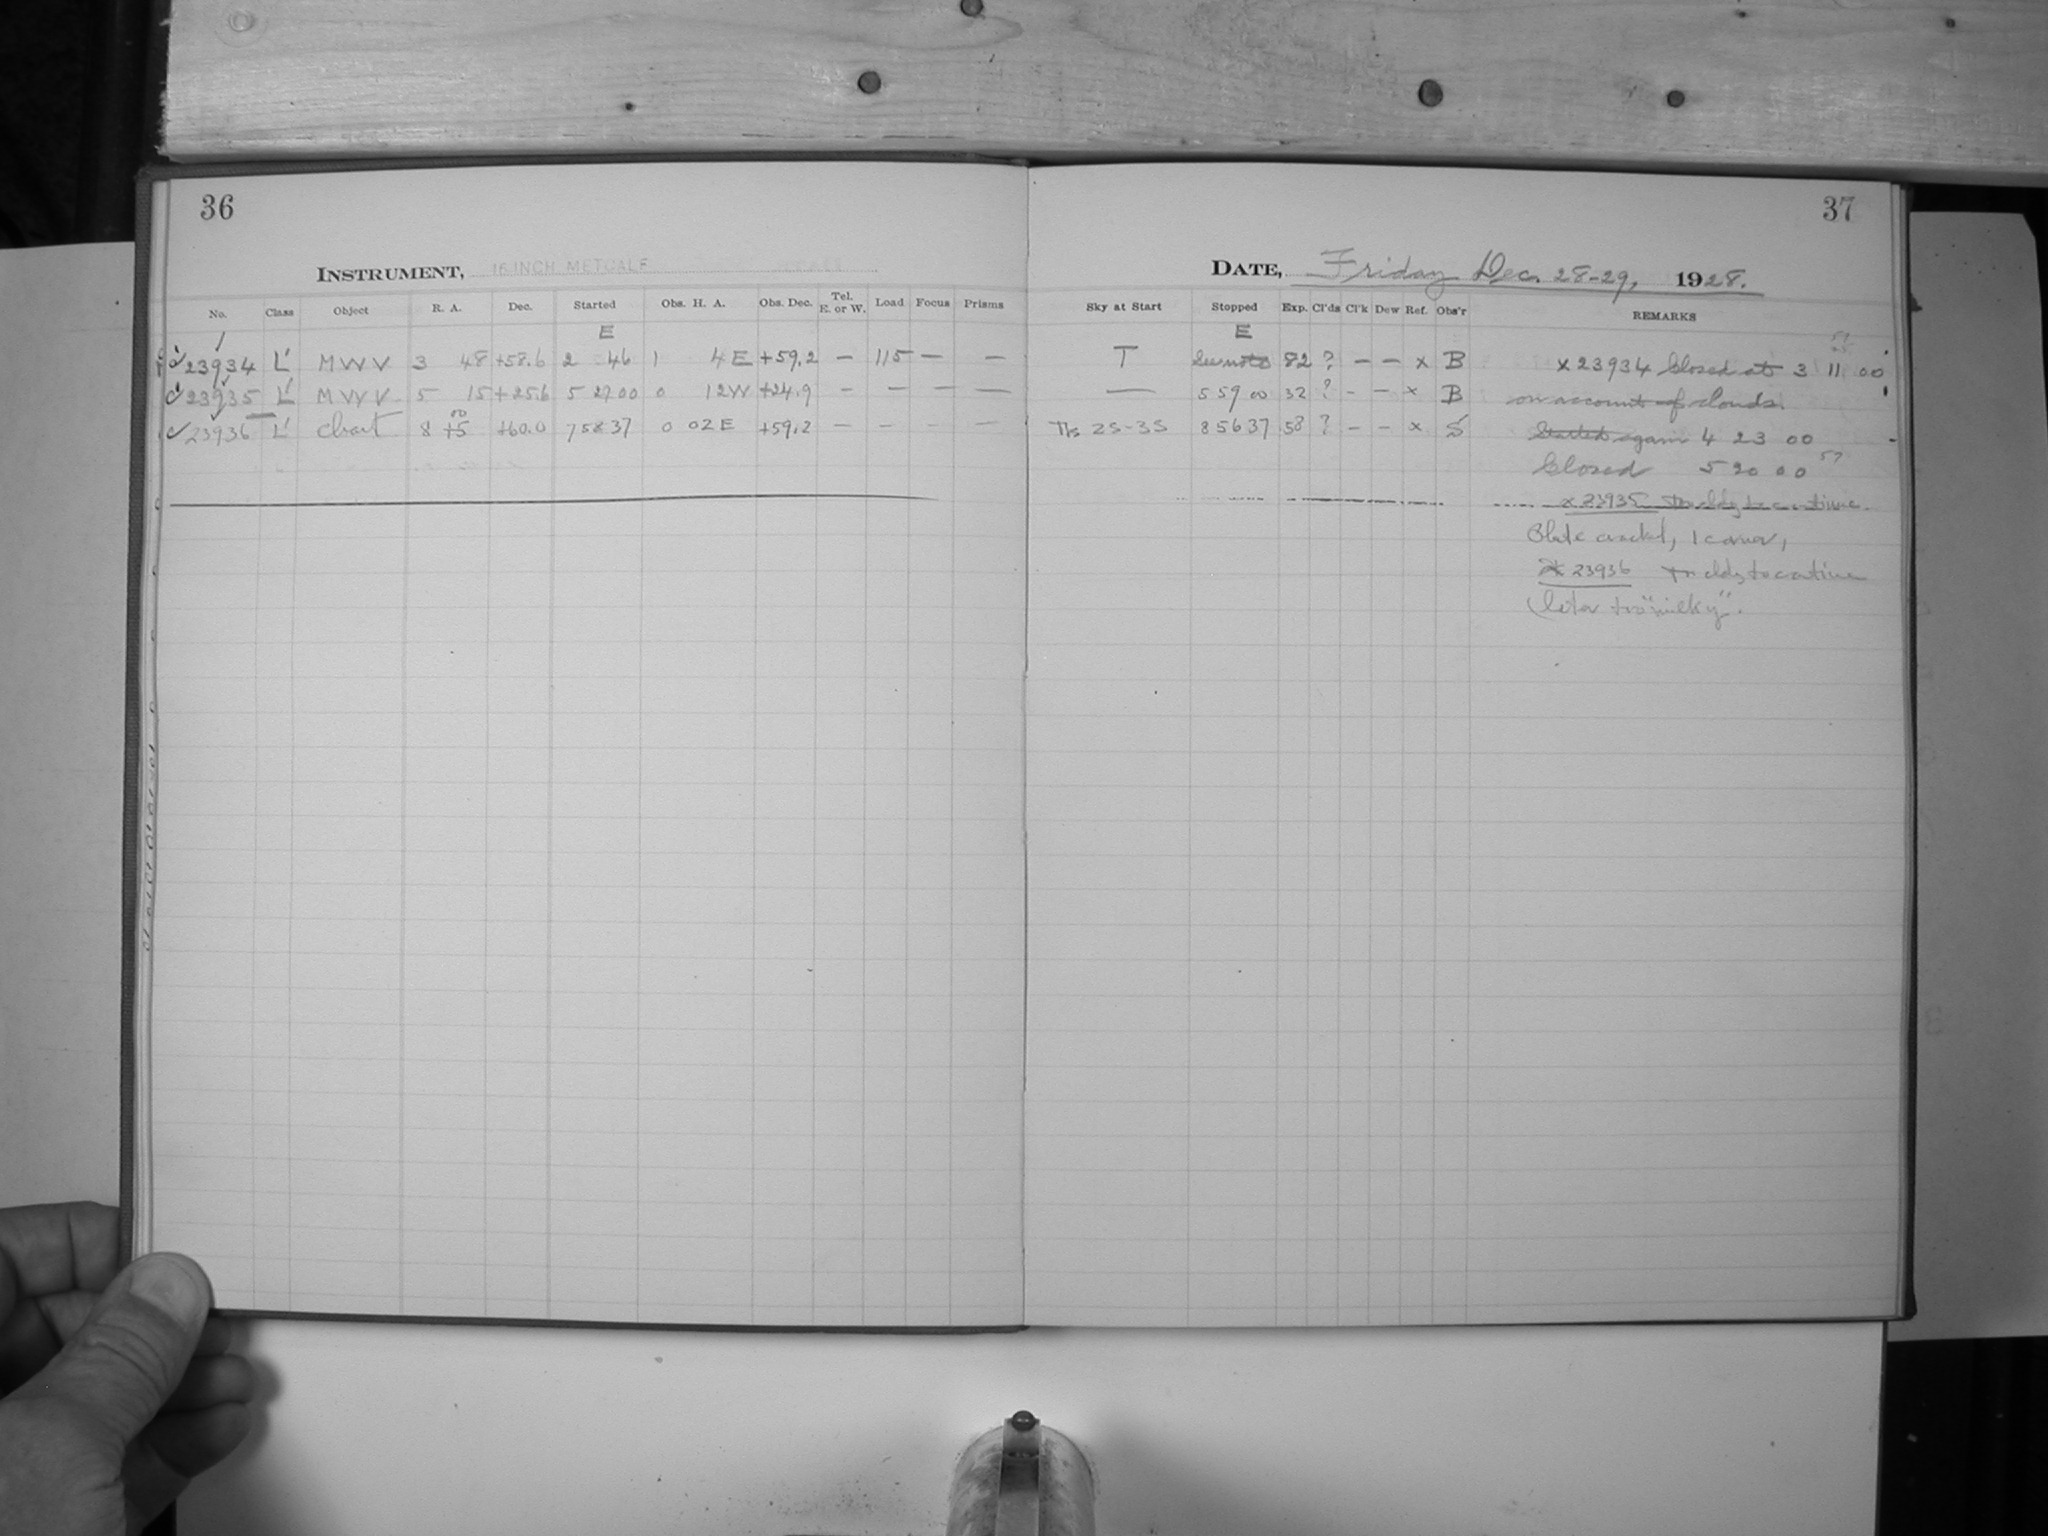 36
INSTRUMENT, 16 INCH METCALF
No. Class Object R. A. Dec. Started Obs. H. A. Obs. Dec. Tel. E. or W. Load Focus Prisms
E
23934 L MWV 3 48 +58.6 2 46 1 4 E +59.2 — 115 — —
23935 L MWV 5 15 +25.6 5 27 00 0 12W +24.9 — — — —
23936 L Chart 8 00 +60.0 7 58 37 0 02 E +59.2 — — — —
37
DATE, Friday Dec. 28-29, 1928.
Sky at Start Stopped Exp. Cl'ds Cl'k Dew Ref. Obs'r REMARKS
E
T See note 82 ? — — x B x 23934 Closed at 3 11 00
— 5 59 00 32 ? — — x B on account of clouds.
2S-3S 8 56 37 58 ? — — x S Started again 4 23 00
Closed 5 20 00
x 23935 Too cldy to continue.
Plate cracked, 1 corner,
23936 Too cldy to continue
(later too "milky".